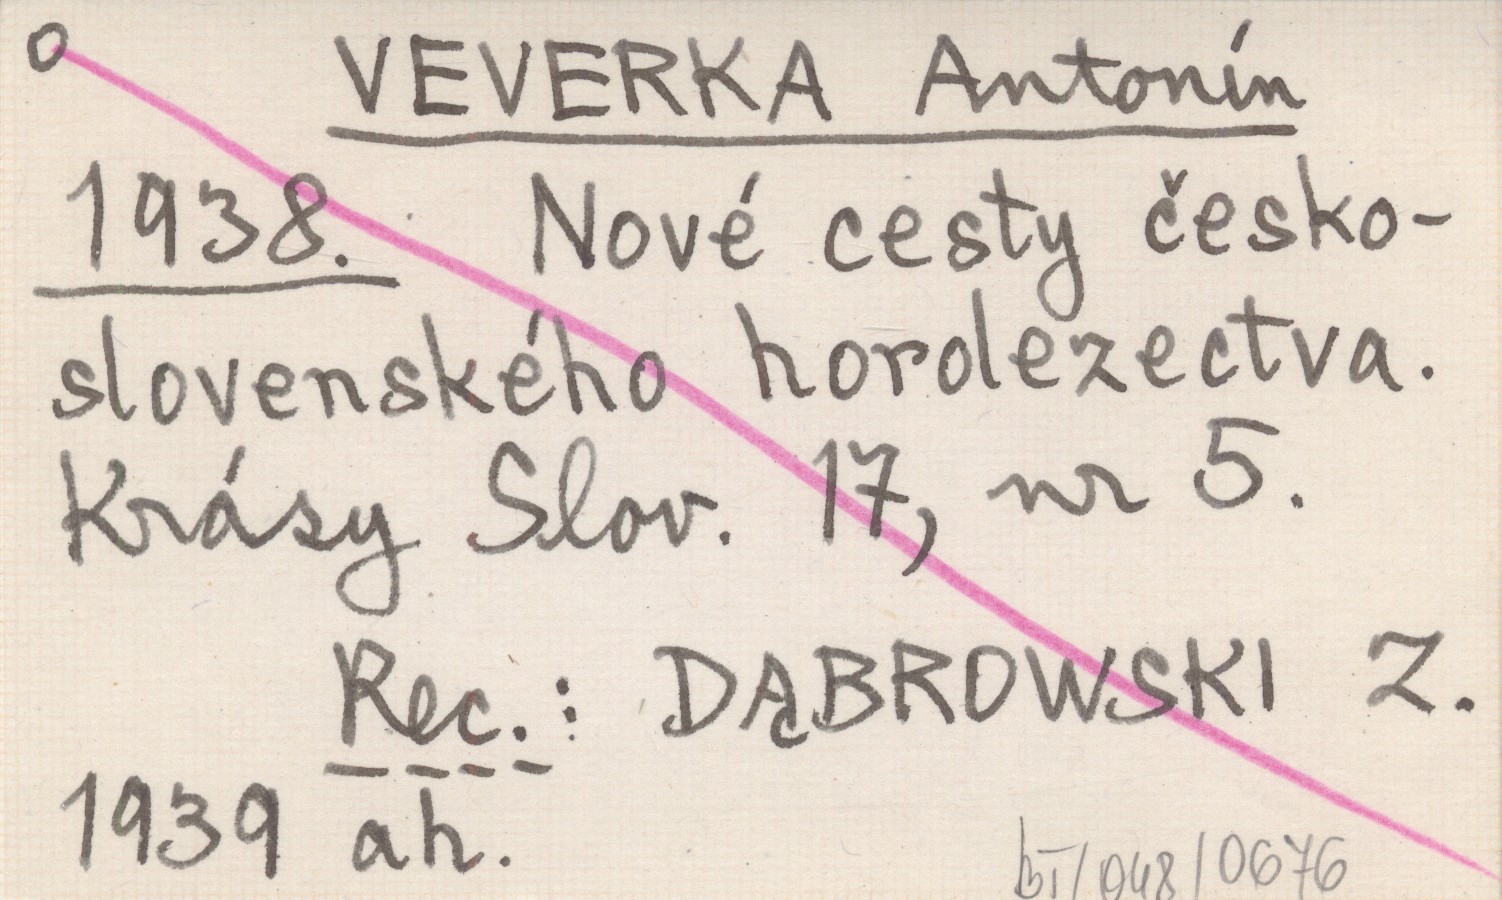 O
VEVERKA Antonín
1938. Nové cesty česko-
slovenského horolezectva.
Krásy Slov. 17, nr 5.
Rec.: DĄBROWSKI Z.
1939 ah.
bT/048/0676